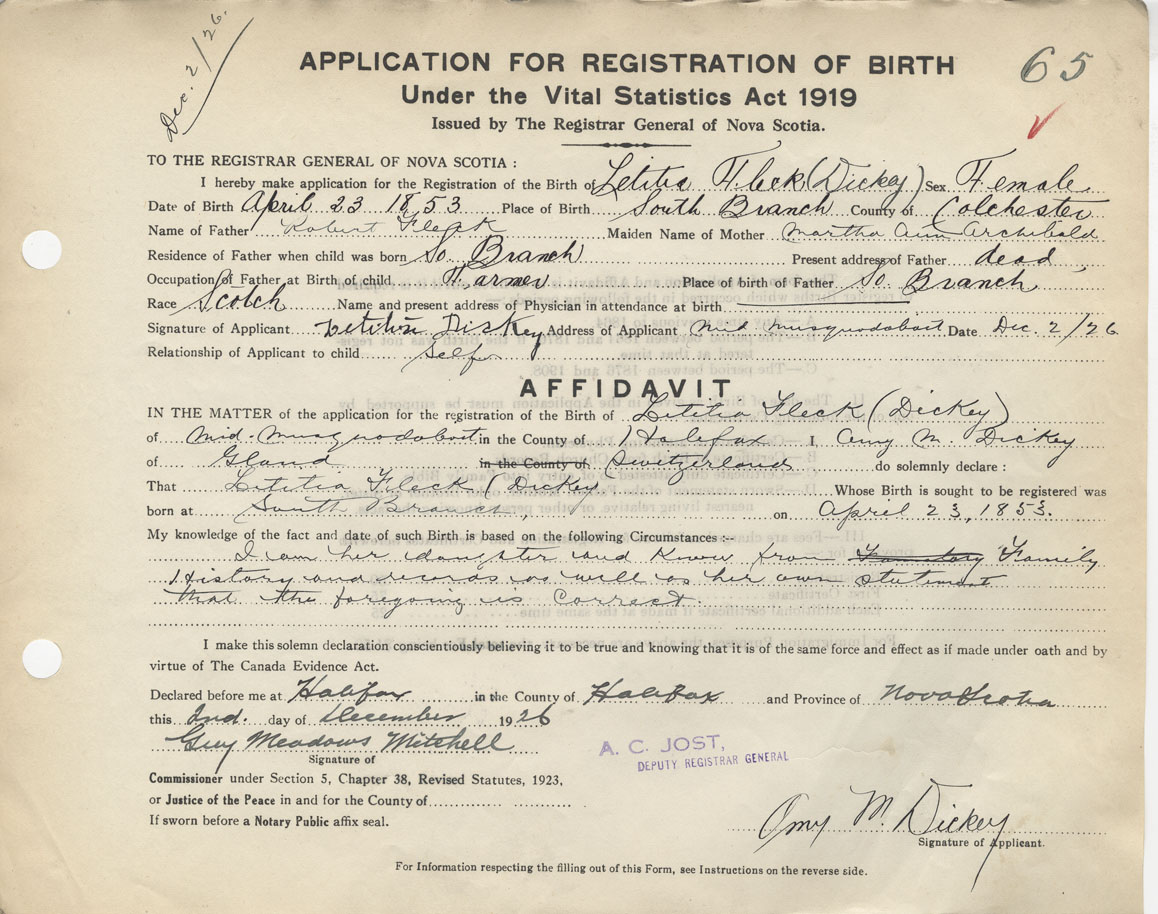 Dec. 2/26.
65
APPLICATION FOR REGISTRATION OF BIRTH
Under the Vital Statistics Act 1919
Issued by The Registrar General of Nova Scotia.
TO THE REGISTRAR GENERAL OF NOVA SCOTIA :
I hereby make application for the Registration of the Birth of Letitia Fleck (Dickey) Sex Female
Date of Birth April 23 1853 Place of Birth South Branch County of Colchester
Name of Father Robert Fleck Maiden Name of Mother Martha Ann Archibald
Residence of Father when child was born So. Branch Present address of Father dead
Occupation of Father at Birth of child. Farmer Place of birth of Father So. Branch
Race Scotch Name and present address of Physician in attendance at birth
Signature of Applicant Dickey Address of Applicant Mid Musquodoboit Date Dec. 2/26
Relationship of Applicant to child Self
AFFIDAVIT
IN THE MATTER of the application for the registration of the Birth of Letitia Fleck (Dickey)
of Mid. Musquodoboit in the County of Halifax I Amy M. Dickey
of Gland in the County of Switzerland do solemnly declare :
That Letitia Fleck (Dickey Whose Birth is sought to be registered was
born at South Branch, on April 23, 1853.
My knowledge of the fact and date of such Birth is based on the following Circumstances :-
I am her daughter and know from Family
History and records as well as her own statement
that the foregoing is correct.
I make this solemn declaration conscientiously believing it to be true and knowing that it is of the same force and effect as if made under oath and by
virtue of The Canada Evidence Act.
Declared before me at Halifax in the County of Halifax and Province of Nova Scotia
this 2nd. day of December 1926
Guy Meadows Mitchell
A. C. JOST,
DEPUTY REGISTRAR GENERAL
Signature of
Commissioner under Section 5, Chapter 38, Revised Statutes, 1923,
or Justice of the Peace in and for the County of
If sworn before a Notary Public affix seal.
Amy M. Dickey
Signature of Applicant.
For Information respecting the filling out of this Form, see Instructions on the reverse side.